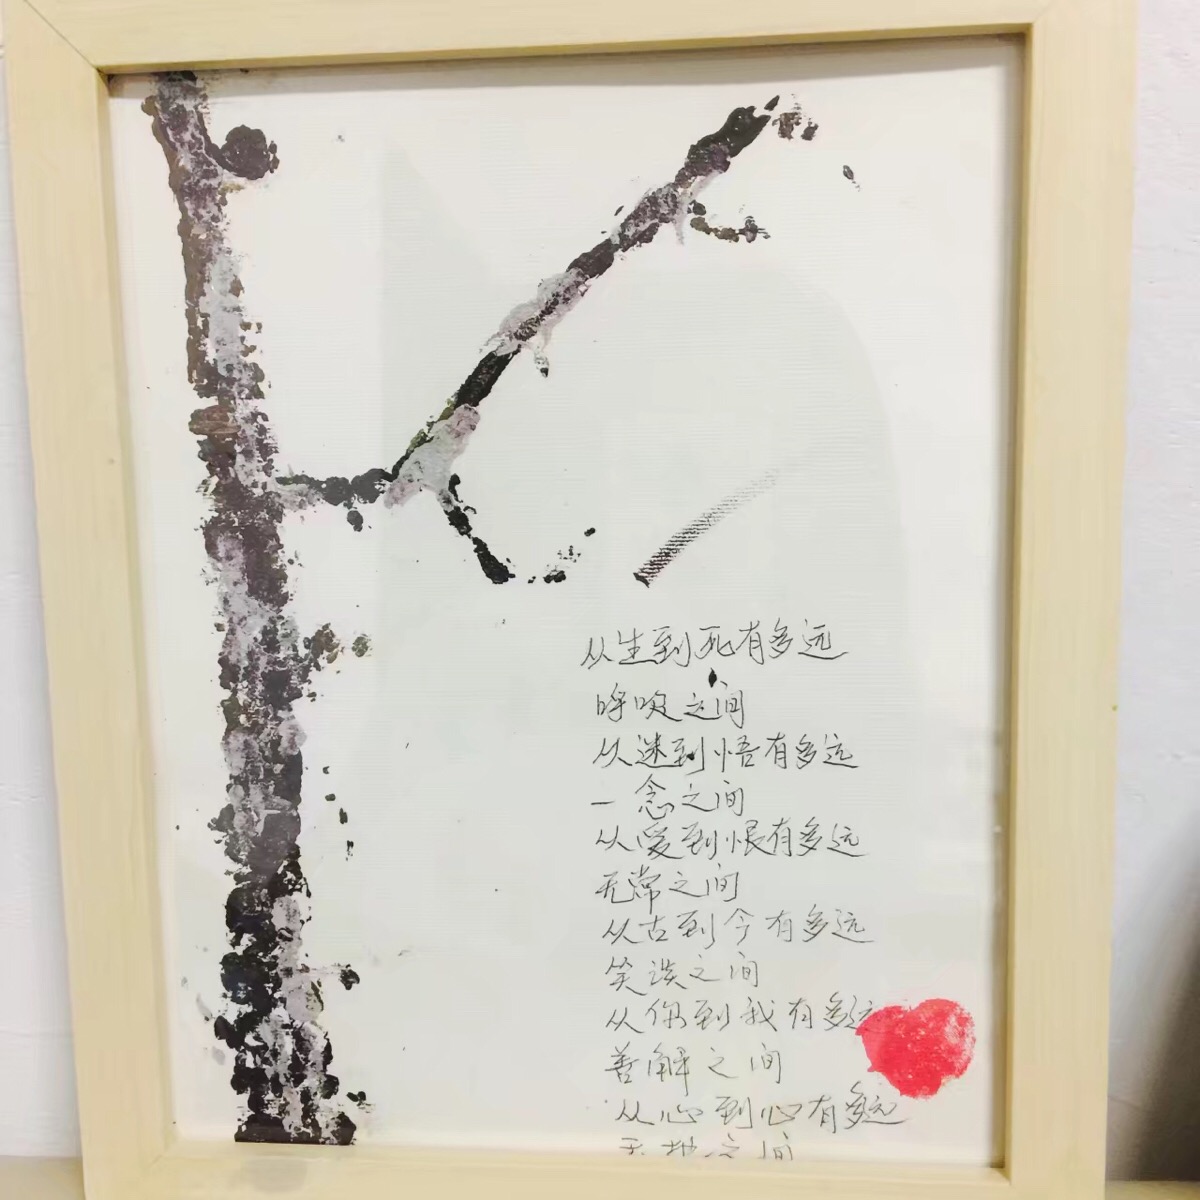 从生到死有多远
呼吸之间
从迷到悟有多远
一念之间
从爱到恨有多远
无常之间
从古到今有多远
笑谈之间
从你到我有多远
善解之间
从心到心有多远
天地之间